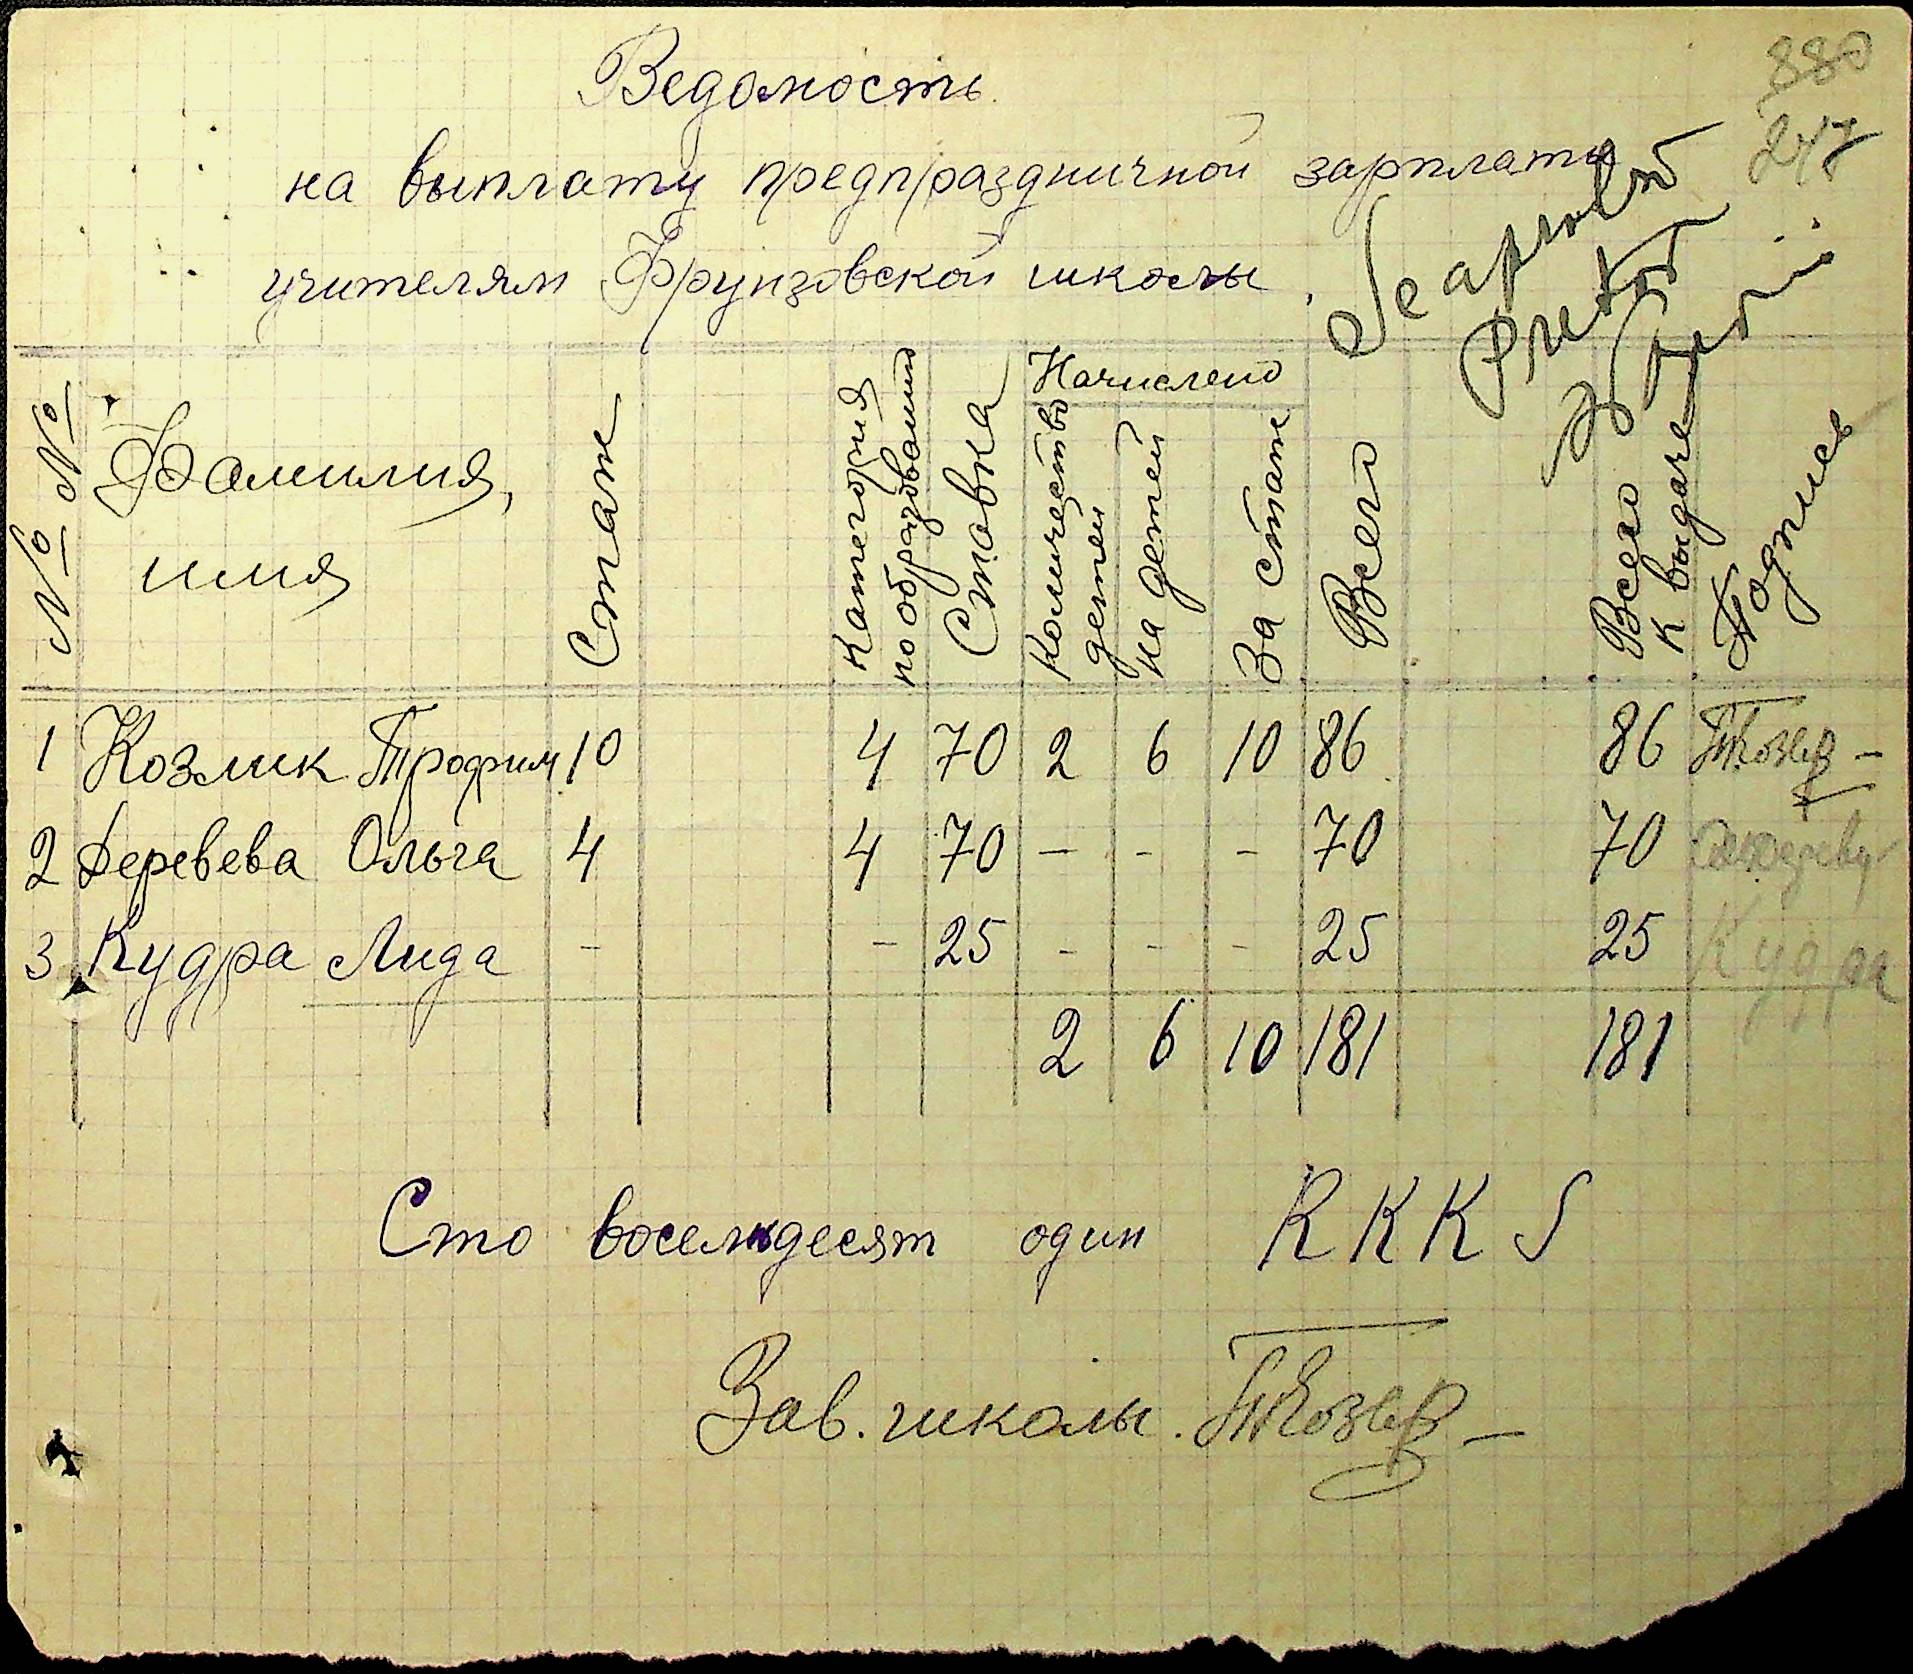 880
247
Ведомость
на выплату предпраздничной зарплаты
учителям Фрунзовской школы.
№ №
Фамилия,
имя
Стаж
Категория
по образованию
Ставка
Начислено
Количество
детей
на детей
За стаж
Всего
Всего
к выдаче
Подпись
1 Козлик Трофим 10 4 70 2 6 10 86 86
2 Деревева Ольга 4 4 70 – – – 70 70
3 Кудра Лида – – 25 – – – 25 25 Кудра
2 6 10 181 181
Сто восемьдесят один RKKS
Зав. школы.